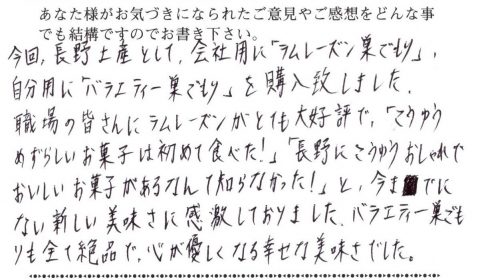 あなた様がお気づきになられたご意見やご感想をどんな事
でも結構ですのでお書き下さい。
今回、長野土産として、会社用に「ラムレーズン巣ごもり」、
自分用に「バラエティー巣ごもり」を購入致しました。
職場の皆さんにラムレーズンがとても大好評で、「こうゆう
めずらしいお菓子は初めて食べた!」「長野にこうゆうおしゃれで
おいしいお菓子があるなんて知らなかった!」と、今までに
ない新しい美味さに感激しておりました。バラエティー巣ごも
りも全て絶品で、心が優しくなる幸せな美味さでした。